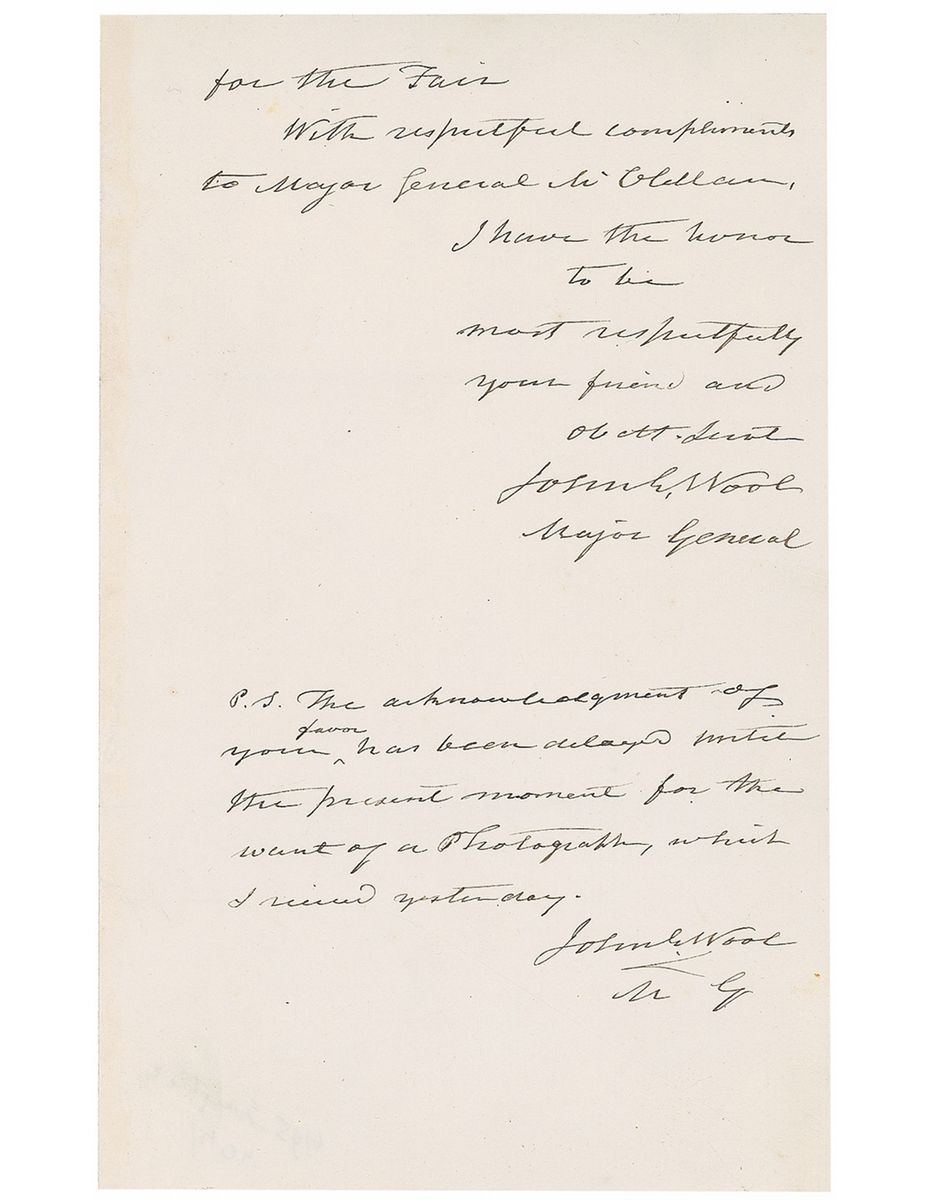 for the Fair
With respectful compliments
to Major General Mc Clellan,
I have the honor
to be
most respectfully
your friend and
obdt. Servt
John E. Wool
Major General
P. S. The acknowledgment of
favor
your ^ has been delayed until
the present moment for the
want of a Photograph, which
I received yesterday.
John E. Wool
M G